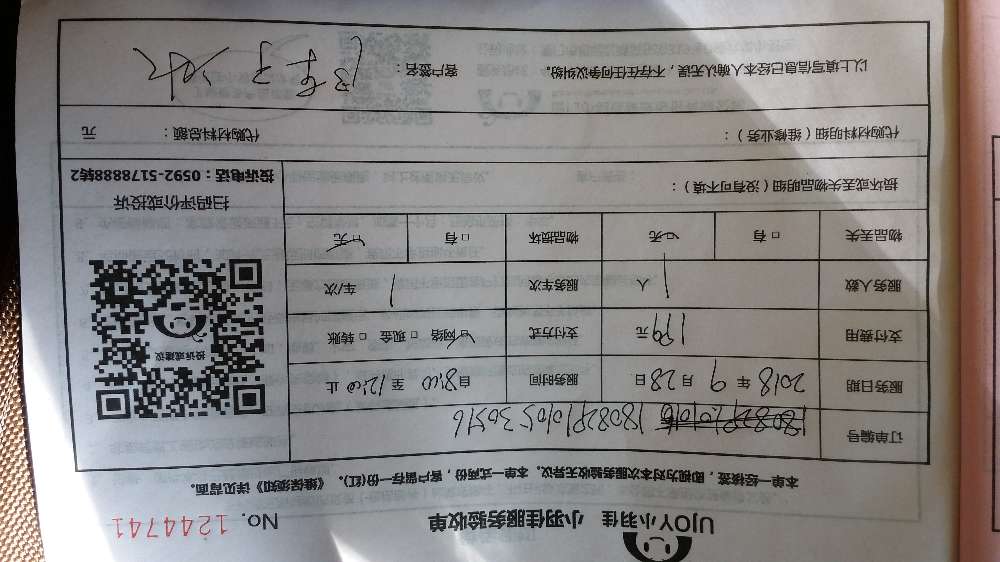 UJOY小羽佳 小羽佳服务验收单 No. 1244741
本单一经核签，即视为对本次服务验收无异议。本单一式两份，客户留存一份(红)。《维保须知》详见背面。
订单编号 18082P1010530516
服务日期 2018 年 9 月 28 日 服务时间 自 8:00 至 12:00 止
支付费用 199 元 支付方式 ☑网络 □现金 □转账
服务人数 1 人 服务车次 1 车/次
物品丢失 □有 ☑无 物品损坏 □有 ☑无
投诉或建议
扫码评价或投诉
投诉电话：0592-5178888转2
损坏或丢失物品明细（没有可不填）：
代购材料明细（维修业务）： 代购材料总额： 元
以上填写信息已经本人确认无误，不存在任何争议纠纷。 客户签名：